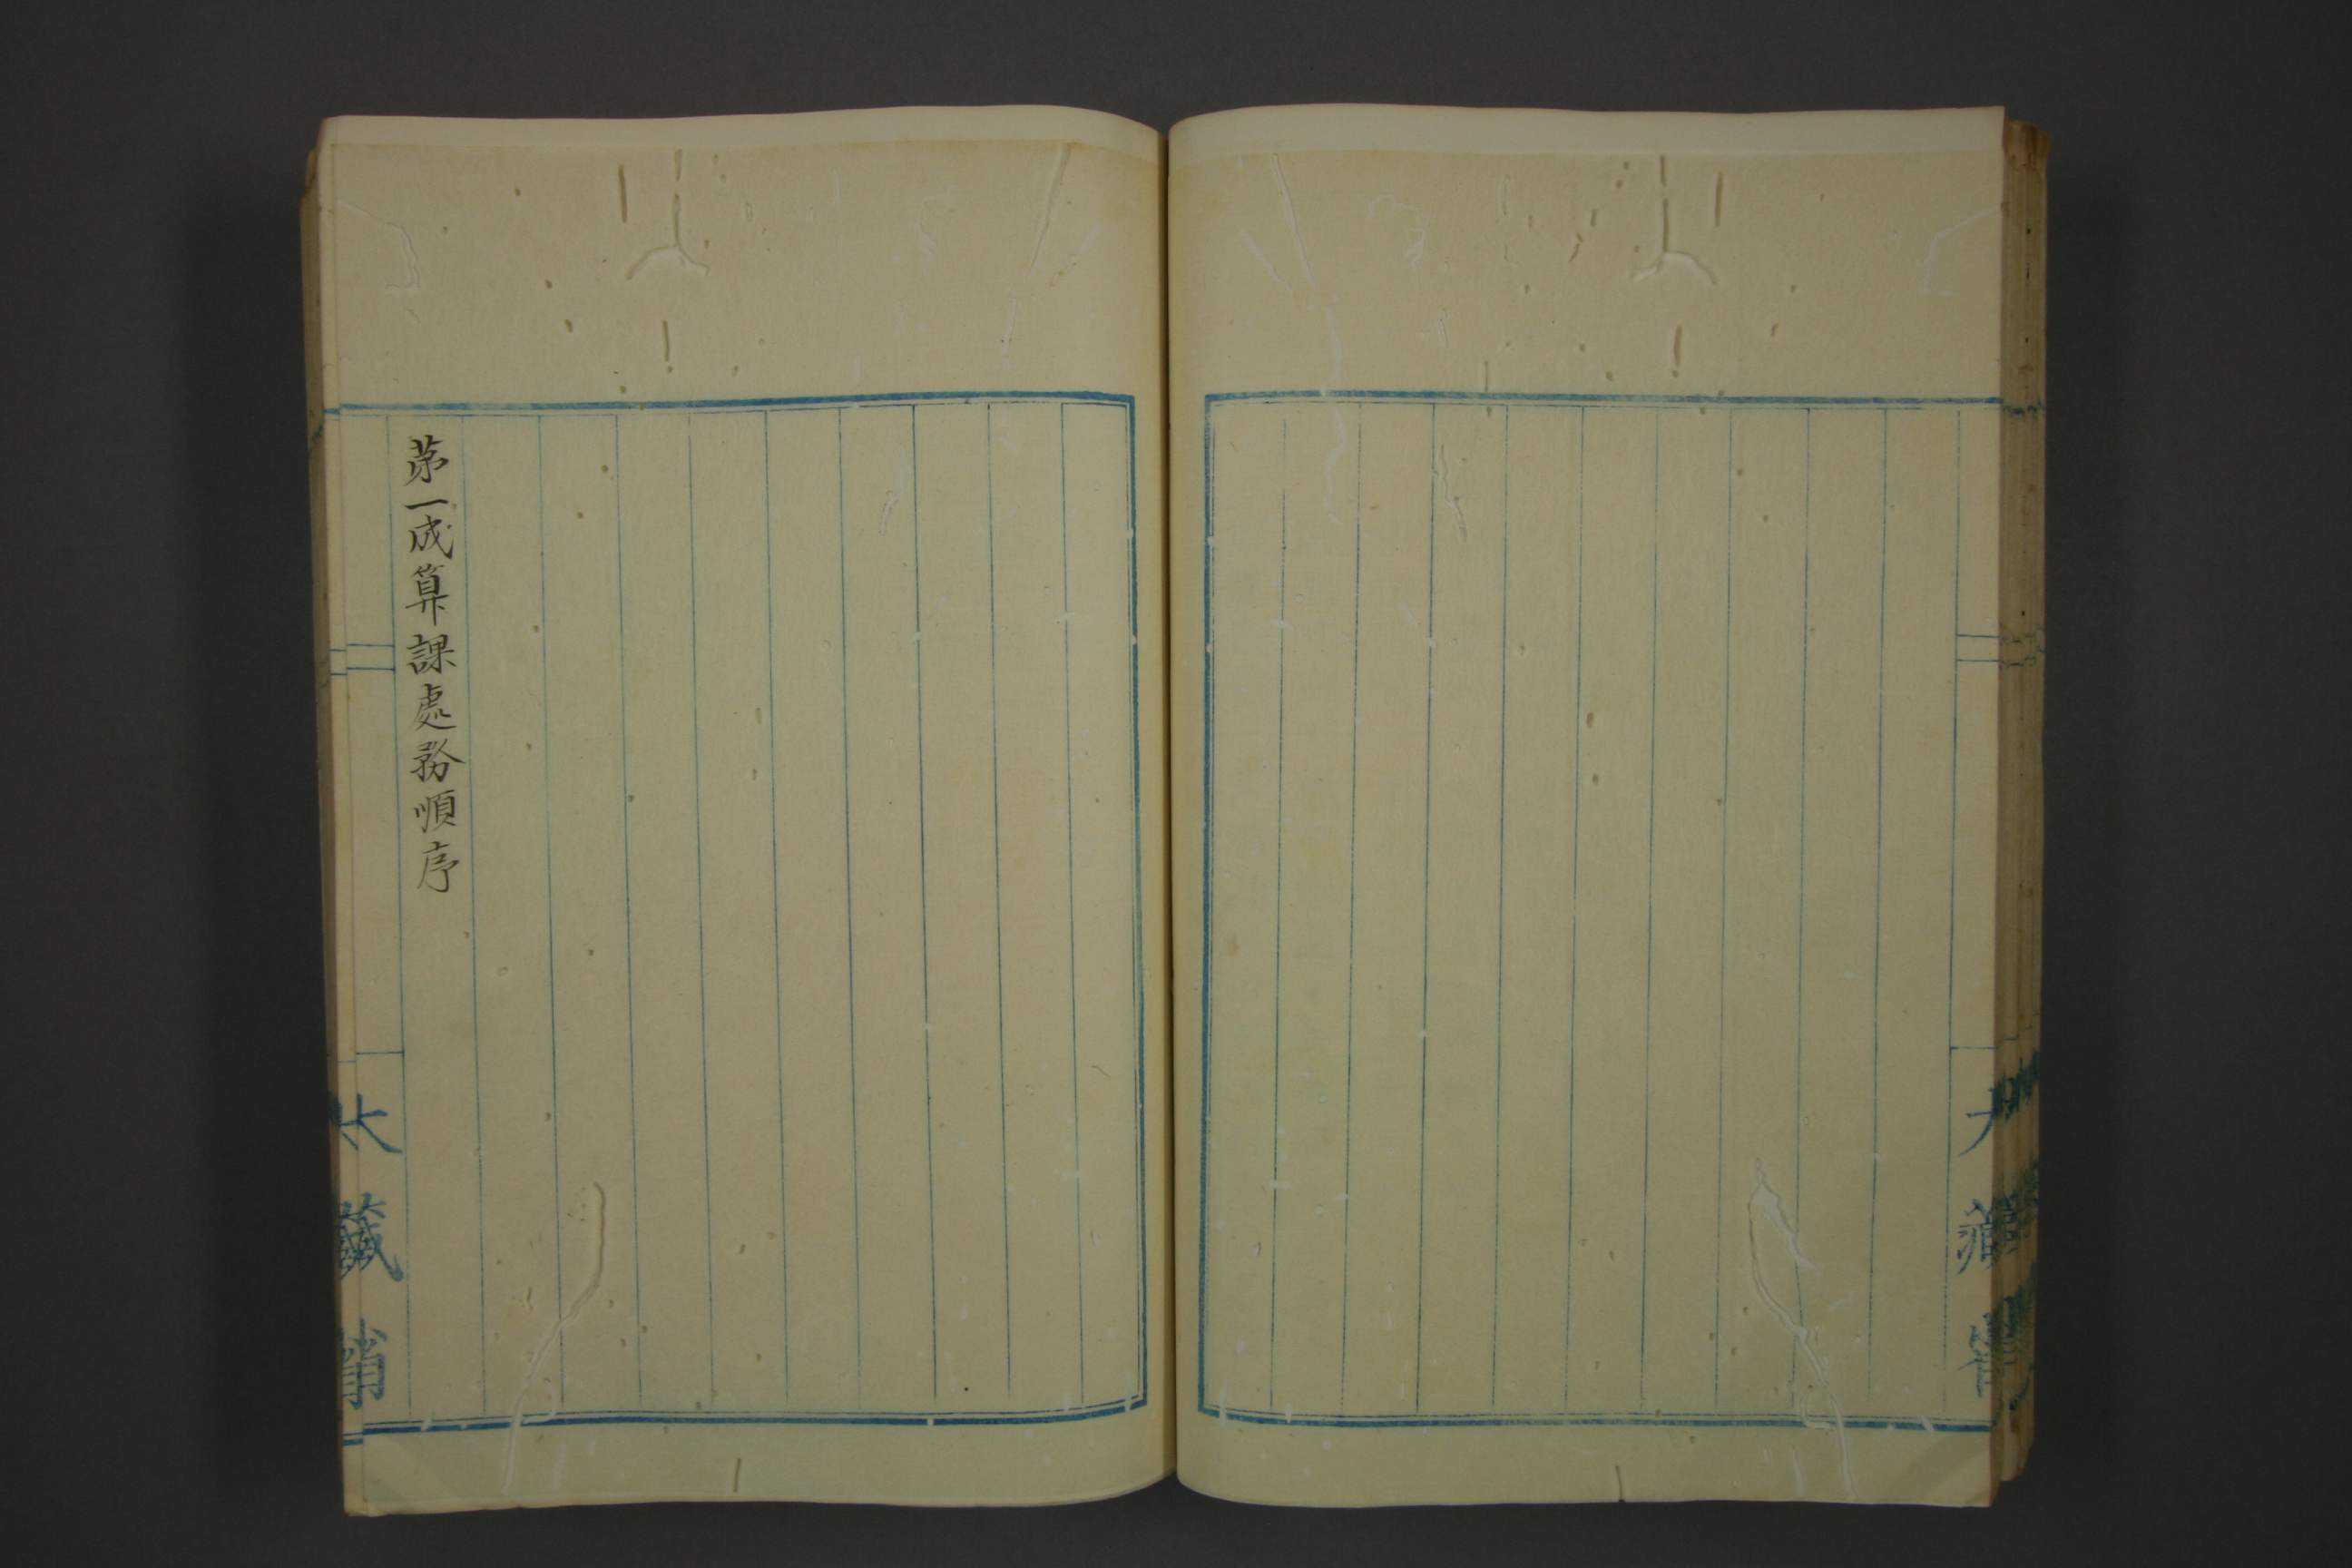 第一成算課處務順序
大藏省
大藏省